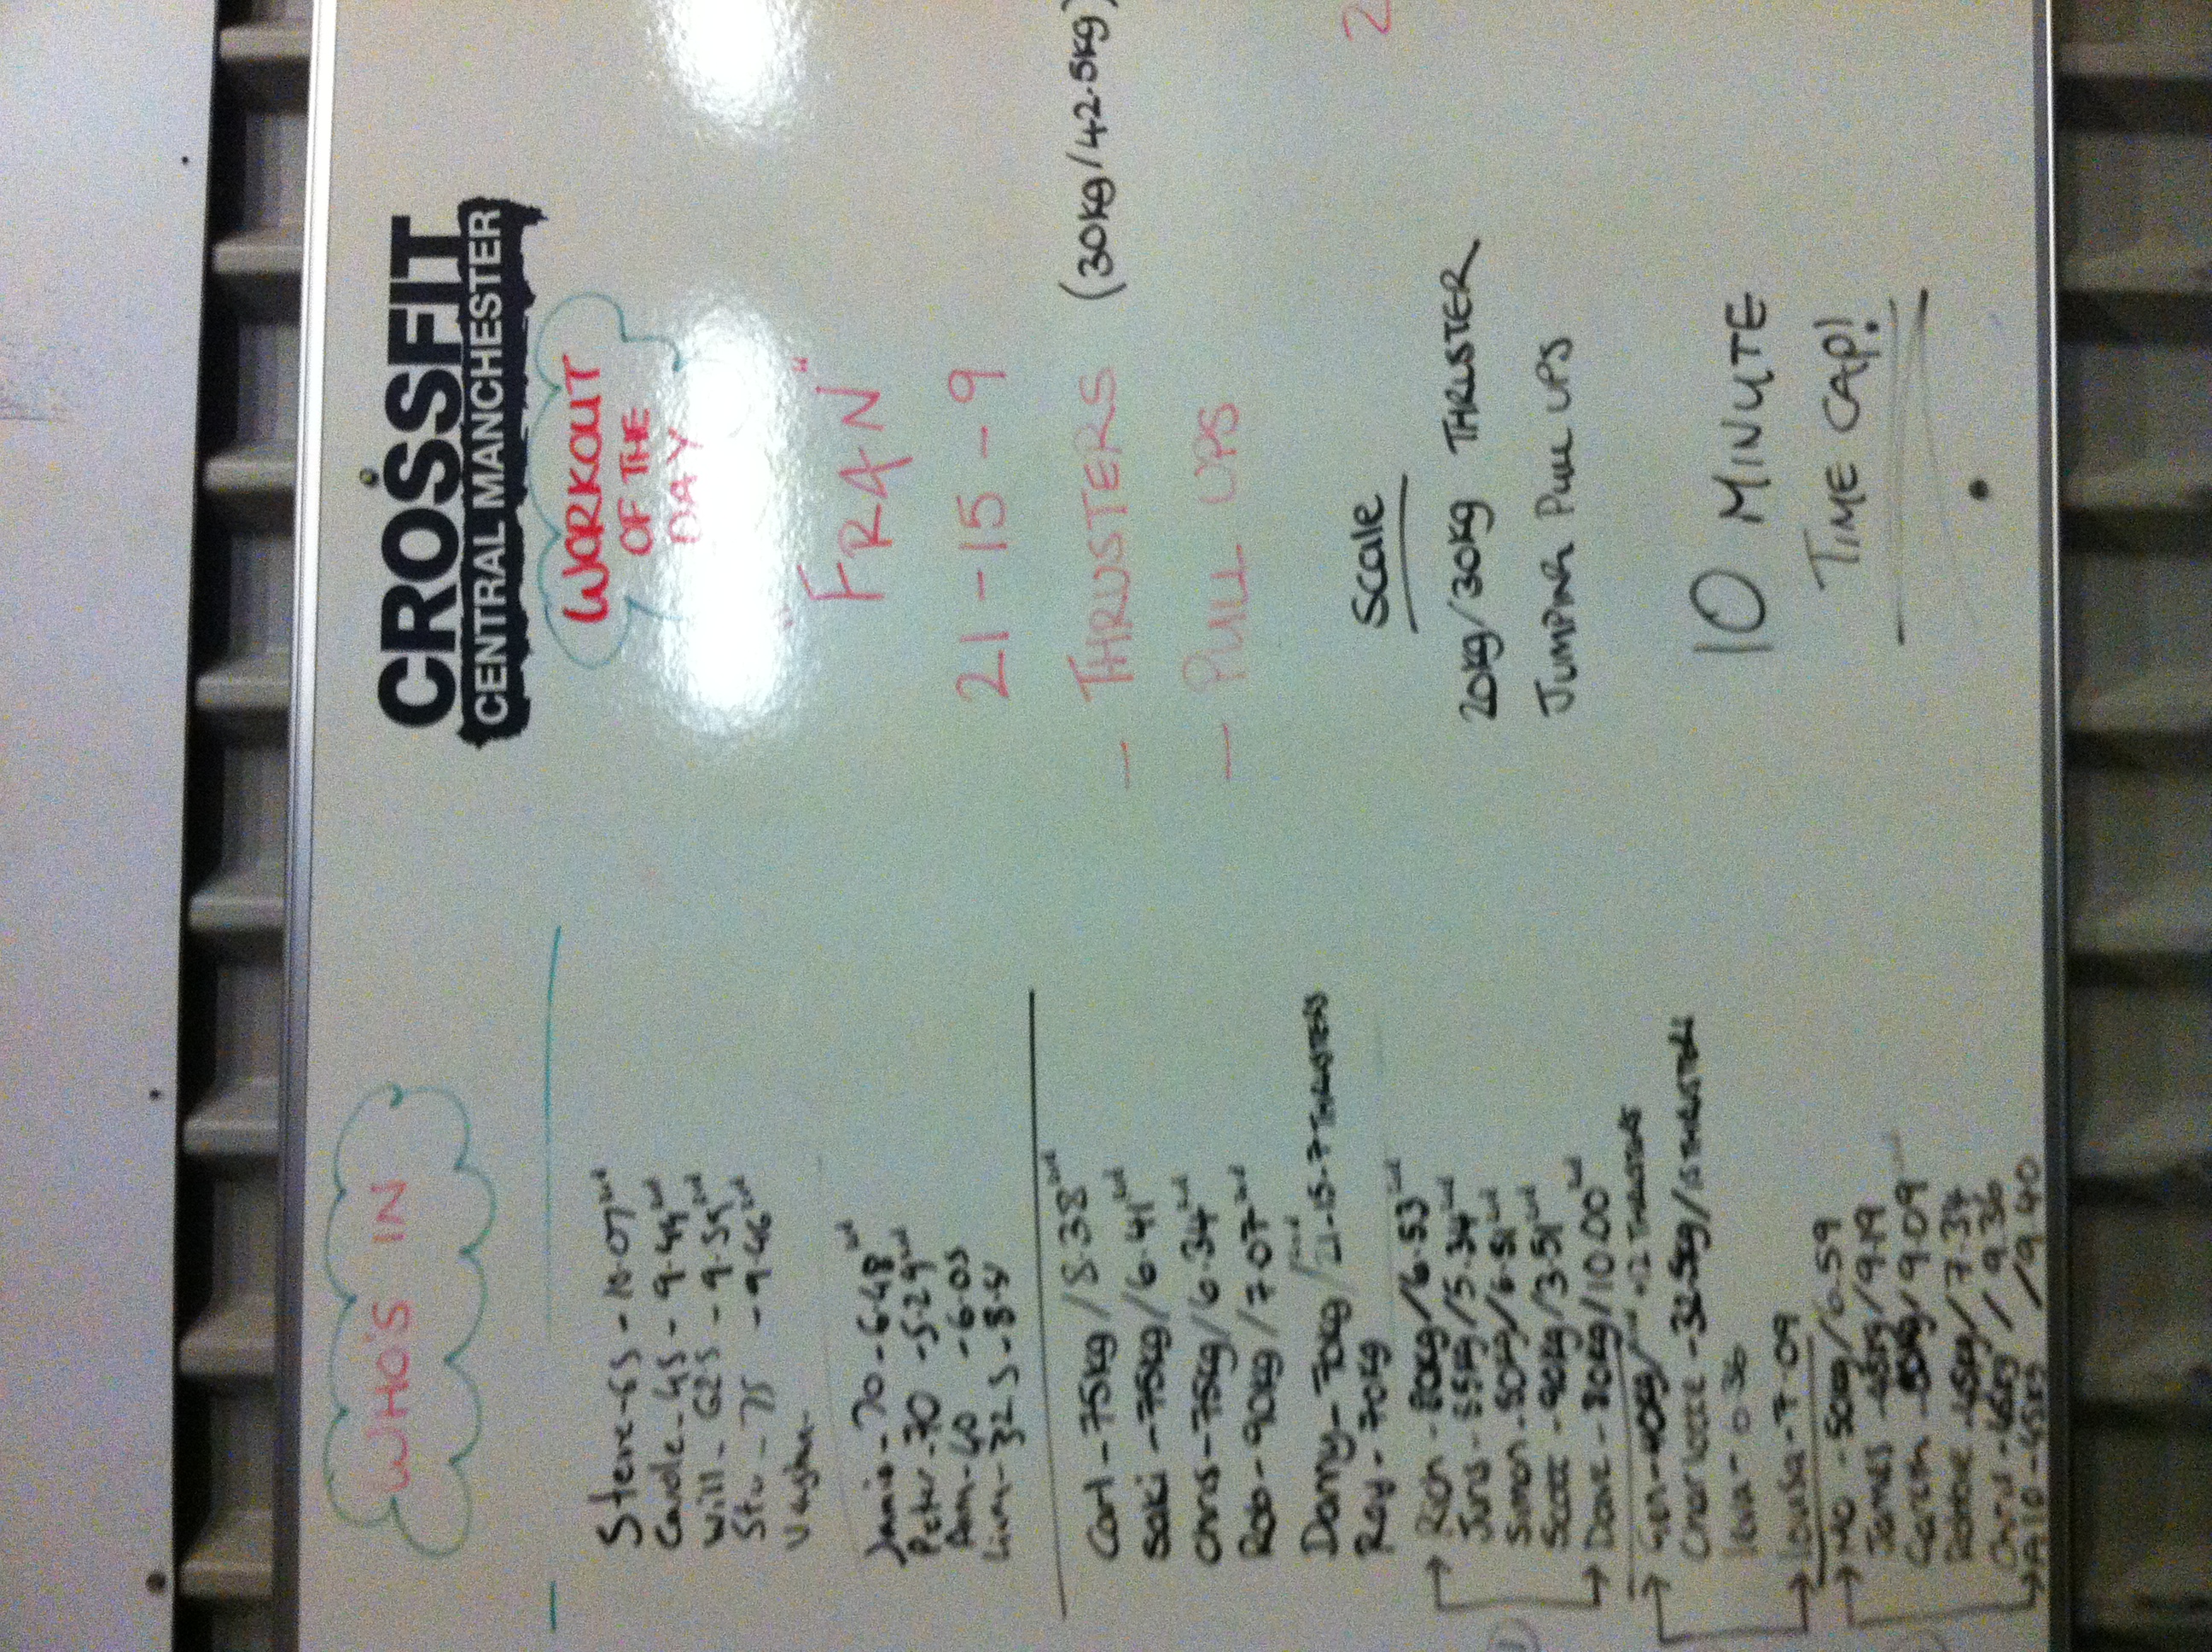 WHO'S IN
Steve - 65 - 10.07
- 45 - 9.44
Will - 62.5 - 9.59
Stu - 75 - 9.46
Jamie - 70 - 6.48
Peter - 70 - 5.29
- 40 - 6.03
- 32.5 - 8.51
Carl - 75kg / 8.38
Saki - 75kg / 6.41
Chris - 75kg / 6.34
Rob - 90kg / 7.07
Danny - 70kg / 21-15-7 THRUSTERS
Ray - 70kg
Rich - 80kg / 6.53
Juns - 55kg / 5.34
Simon - 50kg / 6.51
Scott - 90kg / 3.51
Dave - 80kg / 10.00
Gen - 40kg / THRUSTERS
Charlotte - 32.5kg / THRUSTERS
Louisa - 7.09
Mo - 50kg / 6.59
James - 45kg / 9.19
- 50kg / 9.09
Robbie - 45kg / 7.34
Chris - 45kg / 9.36
- 45kg / 9.40
CROSSFIT
CENTRAL MANCHESTER
WORKOUT
OF THE
DAY
"FRAN"
21 - 15 - 9
- THRUSTERS (30kg/42.5kg)
- PULL UPS
Scale
20kg/30kg THRUSTER
JUMPING PULL UPS
10 MINUTE
TIME CAP!
2